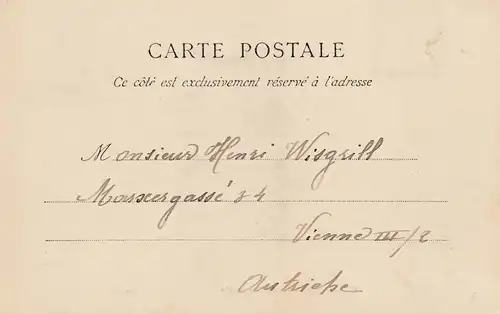 CARTE POSTALE
Ce côté est exclusivement réservé à l'adresse
Monsieur Henri Wisgrill
Marxergassé 34
Vienne III/2
Autriche